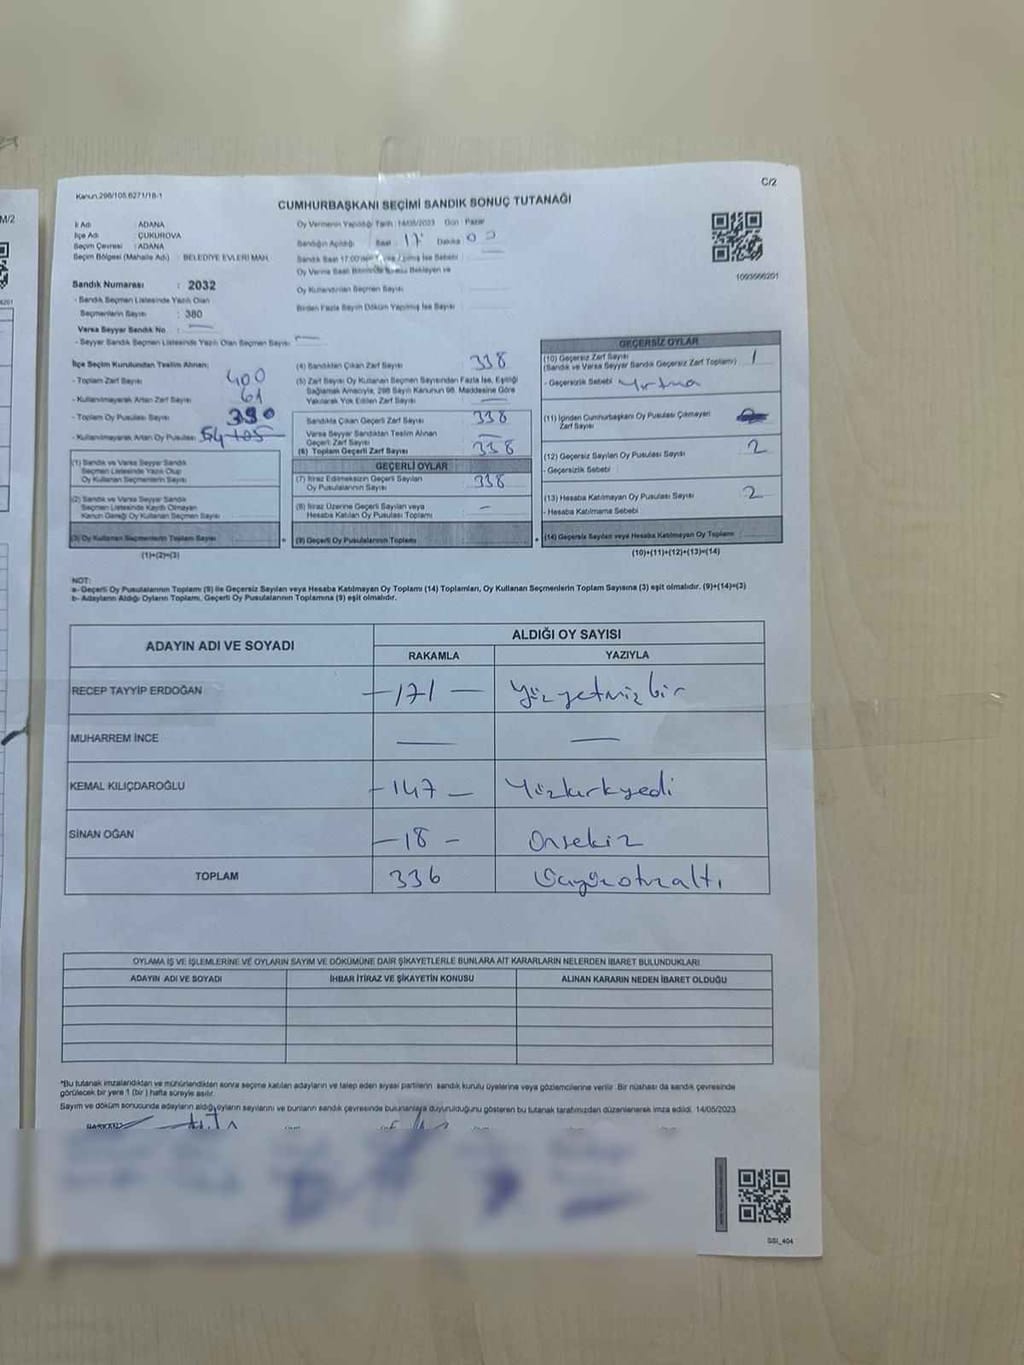 M/2
C/2
Kanun.298/105.6271/18-1
CUMHURBAŞKANI SEÇİMİ SANDIK SONUÇ TUTANAĞI
İl Adı : ADANA
İlçe Adı : ÇUKUROVA
Seçim Çevresi : ADANA
Seçim Bölgesi (Mahalle Adı) : BELEDİYE EVLERİ MAH.
Oy Vermenin Yapıldığı Tarih : 14/05/2023 Gün : Pazar
Sandığın Açıldığı Saat : 17 Dakika 00
Oy Kullandırılan Seçmen Sayısı
Birden Fazla Sayım Döküm Yapılmış İse Sayısı
1093566201
Sandık Numarası : 2032
- Sandık Seçmen Listesinde Yazılı Olan
Seçmenlerin Sayısı : 380
Varsa Seyyar Sandık No :
- Seyyar Sandık Seçmen Listesinde Yazılı Olan Seçmen Sayısı :
İlçe Seçim Kurulundan Teslim Alınan;
- Toplam Zarf Sayısı 400
- Kullanılmayarak Artan Zarf Sayısı 61
- Toplam Oy Pusulası Sayısı 390
- Kullanılmayarak Artan Oy Pusulası 54
(1) Sandık ve Varsa Seyyar Sandık
Seçmen Listesinde Yazılı Olup
Oy Kullanan Seçmenlerin Sayısı
(2) Sandık ve Varsa Seyyar Sandık
Seçmen Listesinde Kayıtlı Olmayan
Kanun Gereği Oy Kullanan Seçmen Sayısı
(3) Oy Kullanan Seçmenlerin Toplam Sayısı
(1)+(2)=(3)
(4) Sandıktan Çıkan Zarf Sayısı 338
(5) Zarf Sayısı Oy Kullanan Seçmen Sayısından Fazla İse, Eşitliği
Sağlamak Amacıyla, 298 Sayılı Kanunun 98. Maddesine Göre
Yakılarak Yok Edilen Zarf Sayısı
Sandıkta Çıkan Geçerli Zarf Sayısı 338
Varsa Seyyar Sandıktan Teslim Alınan
Geçerli Zarf Sayısı
(6) Toplam Geçerli Zarf Sayısı 338
GEÇERLİ OYLAR
(7) İtiraz Edilmeksizin Geçerli Sayılan
Oy Pusulalarının Sayısı 338
(8) İtiraz Üzerine Geçerli Sayılan veya
Hesaba Katılan Oy Pusulası Toplamı -
(9) Geçerli Oy Pusulalarının Toplamı
GEÇERSİZ OYLAR
(10) Geçersiz Zarf Sayısı
(Sandık ve Varsa Seyyar Sandık Geçersiz Zarf Toplamı) 1
- Geçersizlik Sebebi Yırtma
(11) İçinden Cumhurbaşkanı Oy Pusulası Çıkmayan
Zarf Sayısı
(12) Geçersiz Sayılan Oy Pusulası Sayısı 2
- Geçersizlik Sebebi
(13) Hesaba Katılmayan Oy Pusulası Sayısı 2
- Hesaba Katılmama Sebebi
(14) Geçersiz Sayılan veya Hesaba Katılmayan Oy Toplamı
(10)+(11)+(12)+(13)=(14)
NOT:
a- Geçerli Oy Pusulalarının Toplamı (9) ile Geçersiz Sayılan veya Hesaba Katılmayan Oy Toplamı (14) Toplamları, Oy Kullanan Seçmenlerin Toplam Sayısına (3) eşit olmalıdır. (9)+(14)=(3)
b- Adayların Aldığı Oyların Toplamı, Geçerli Oy Pusulalarının Toplamına (9) eşit olmalıdır.
ADAYIN ADI VE SOYADI
ALDIĞI OY SAYISI
RAKAMLA YAZIYLA
RECEP TAYYİP ERDOĞAN -171- Yüzyetmişbir
MUHARREM İNCE — —
KEMAL KILIÇDAROĞLU -147- Yüzkırkyedi
SİNAN OĞAN -18- Onsekiz
TOPLAM 336 Üçyüzotuzaltı
OYLAMA İŞ VE İŞLEMLERİNE VE OYLARIN SAYIM VE DÖKÜMÜNE DAİR ŞİKAYETLERLE BUNLARA AİT KARARLARIN NELERDEN İBARET BULUNDUKLARI
ADAYIN ADI VE SOYADI İHBAR İTİRAZ VE ŞİKAYETİN KONUSU ALINAN KARARIN NEDEN İBARET OLDUĞU
*Bu tutanak imzalandıktan ve mühürlendikten sonra seçime katılan adayların ve talep eden siyasi partilerin sandık kurulu üyelerine veya gözlemcilerine verilir. Bir nüshası da sandık çevresinde
görülecek bir yere 1 (bir) hafta süreyle asılır.
Sayım ve döküm sonucunda adayların aldığı oyların sayılarını ve bunların sandık çevresinde bulunanlara duyurulduğunu gösteren bu tutanak tarafımızdan düzenlenerek imza edildi. 14/05/2023
SSI_404